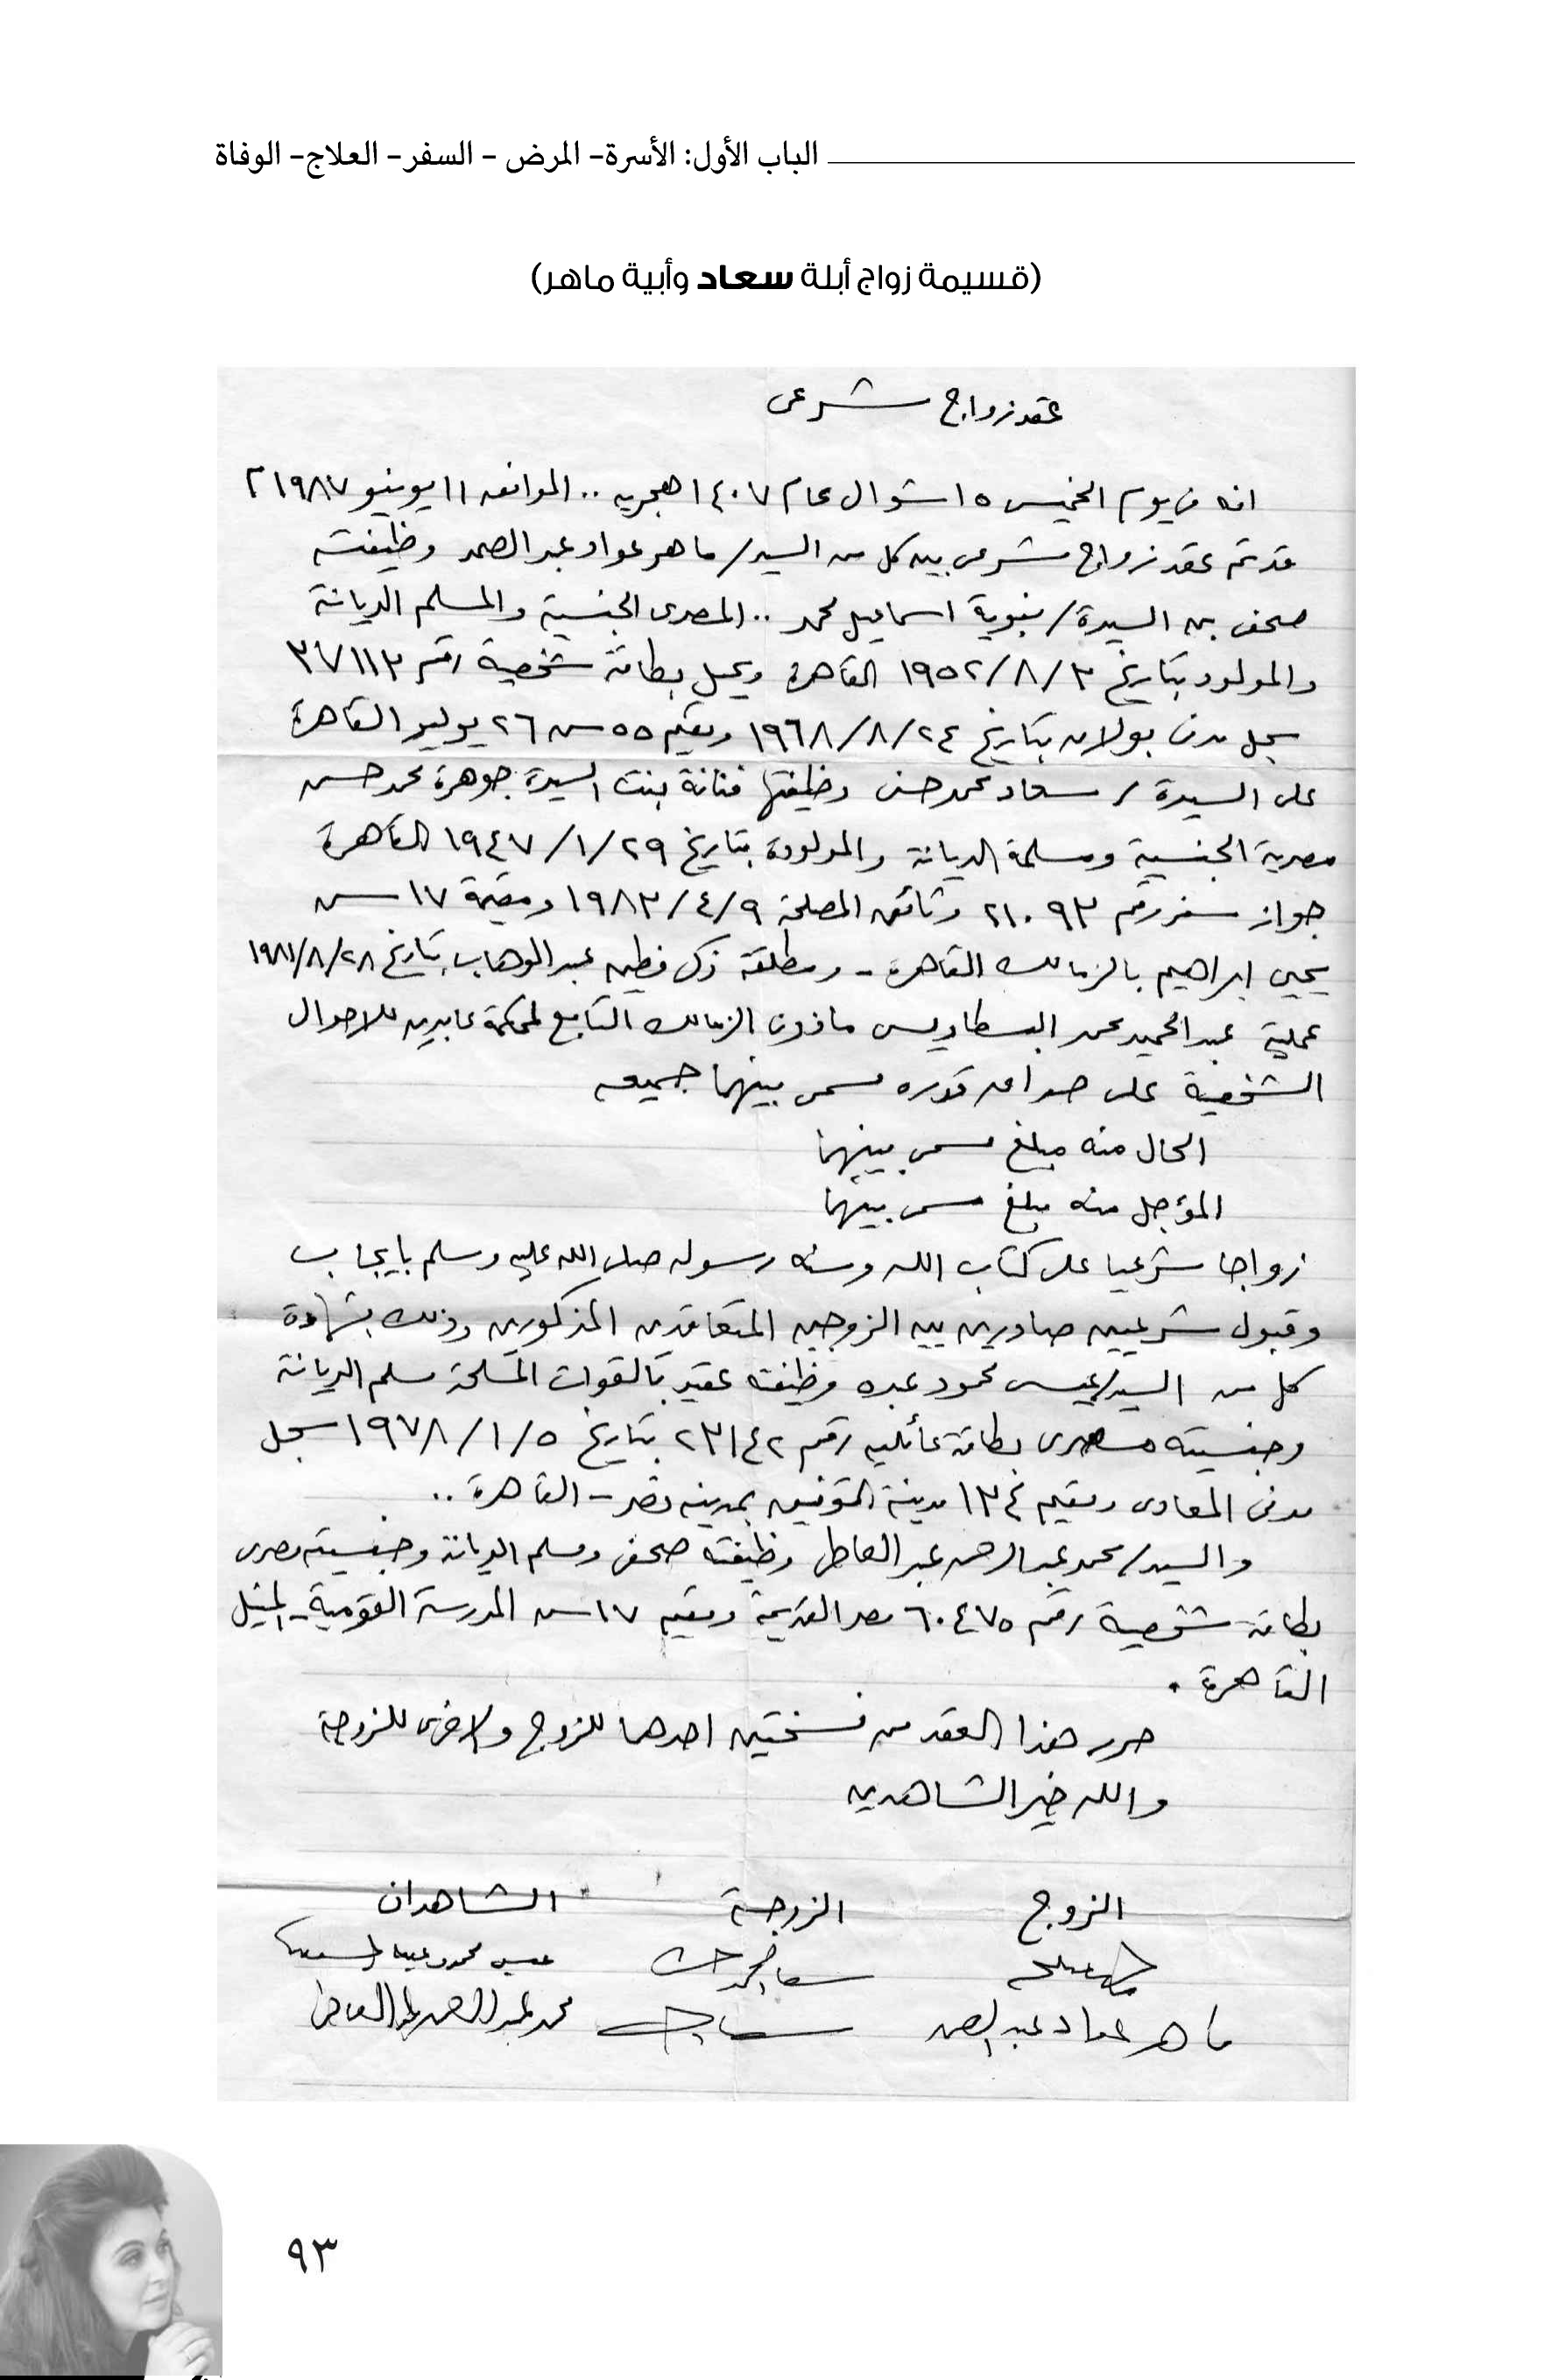 الباب الأول: الأسرة- المرض - السفر- العلاج- الوفاة
(قسيمة زواج أبلة سعاد وأبية ماهر)
عقد زواج شرعى
انه فى يوم الخميس ١٥ شوال عام ١٤٠٧ هجريه .. الموافق ١١ يونيو ١٩٨٧ م
قد تم عقد زواج شرعى بين كل من السيد/ ماهر عواد عبد الصمد وظيفته
صحفى بن السيدة/ بنوية اسماعيل محمد .. المصرى الجنسية والمسلم الديانة
والمولود بتاريخ ٣/٨/١٩٥٢ القاهرة ويحمل بطاقة شخصية رقم ٣٧١١٣
سجل مدنى بولاق بتاريخ ٢٤/٨/١٩٦٨ ومقيم ٥٥ ش ٢٦ يوليو القاهرة
على السيدة / سعاد محمد حسنى وظيفتها فنانة بنت السيدة جوهرة محمد حسن
مصرية الجنسية ومسلمة الديانة والمولودة بتاريخ ٢٩/١/١٩٤٧ القاهرة
جواز سفر رقم ٢١٠٩٣ وثائق المصلحة ٩/٤/١٩٨٣ ومقيمة ١٧ ش
يحيى ابراهيم بالزمالك القاهرة - ومطلقة زكى فطين عبد الوهاب بتاريخ ٢٨/٨/١٩٨١
عملية عبد الحميد محمد البسطاويسى ماذون الزمالك التابع لمحكمة عابدين للاحوال
الشخصية على صداق قدره مسمى بينهما جميعه
الحال منه مبلغ مسمى بينهما
المؤجل منه مبلغ مسمى بينهما
زواجا شرعيا على كتاب الله وسنه رسوله صلى الله عليه وسلم بايجاب
وقبول شرعيين صادرين بين الزوجين المتعاقدين المذكورين وذلك بشهادة
كل من السيد/ عيسى محمود عبده وظيفته عقيد بالقوات المسلحة مسلم الديانة
وجنسيته مصرى بطاقة عائليه رقم ٢٣١٤٢ بتاريخ ٥/١/١٩٧٨ سجل
مدنى المعادى ومقيم ١٣٤ مدينة التوفيق بمدينه نصر - القاهرة ..
والسيد/ محمد عبد الرحمن عبد العاطى وظيفته صحفى ومسلم الديانة وجنسيته مصرى
بطاقة شخصية رقم ٦٠٤٧٥ مصر القديمة ومقيم ١٧ ش المدرسة القومية - المنيل
القاهرة .
حرر هذا العقد من نسختين احدهما للزوج والاخرى للزوجة
والله خير الشاهدين
الزوج الزوجة الشاهدان
سعاد محمد حسنى عيسى محمود عبده
ماهر عواد عبد الصمد سعاد محمد عبد الرحمن عبد العاطى
٩٣